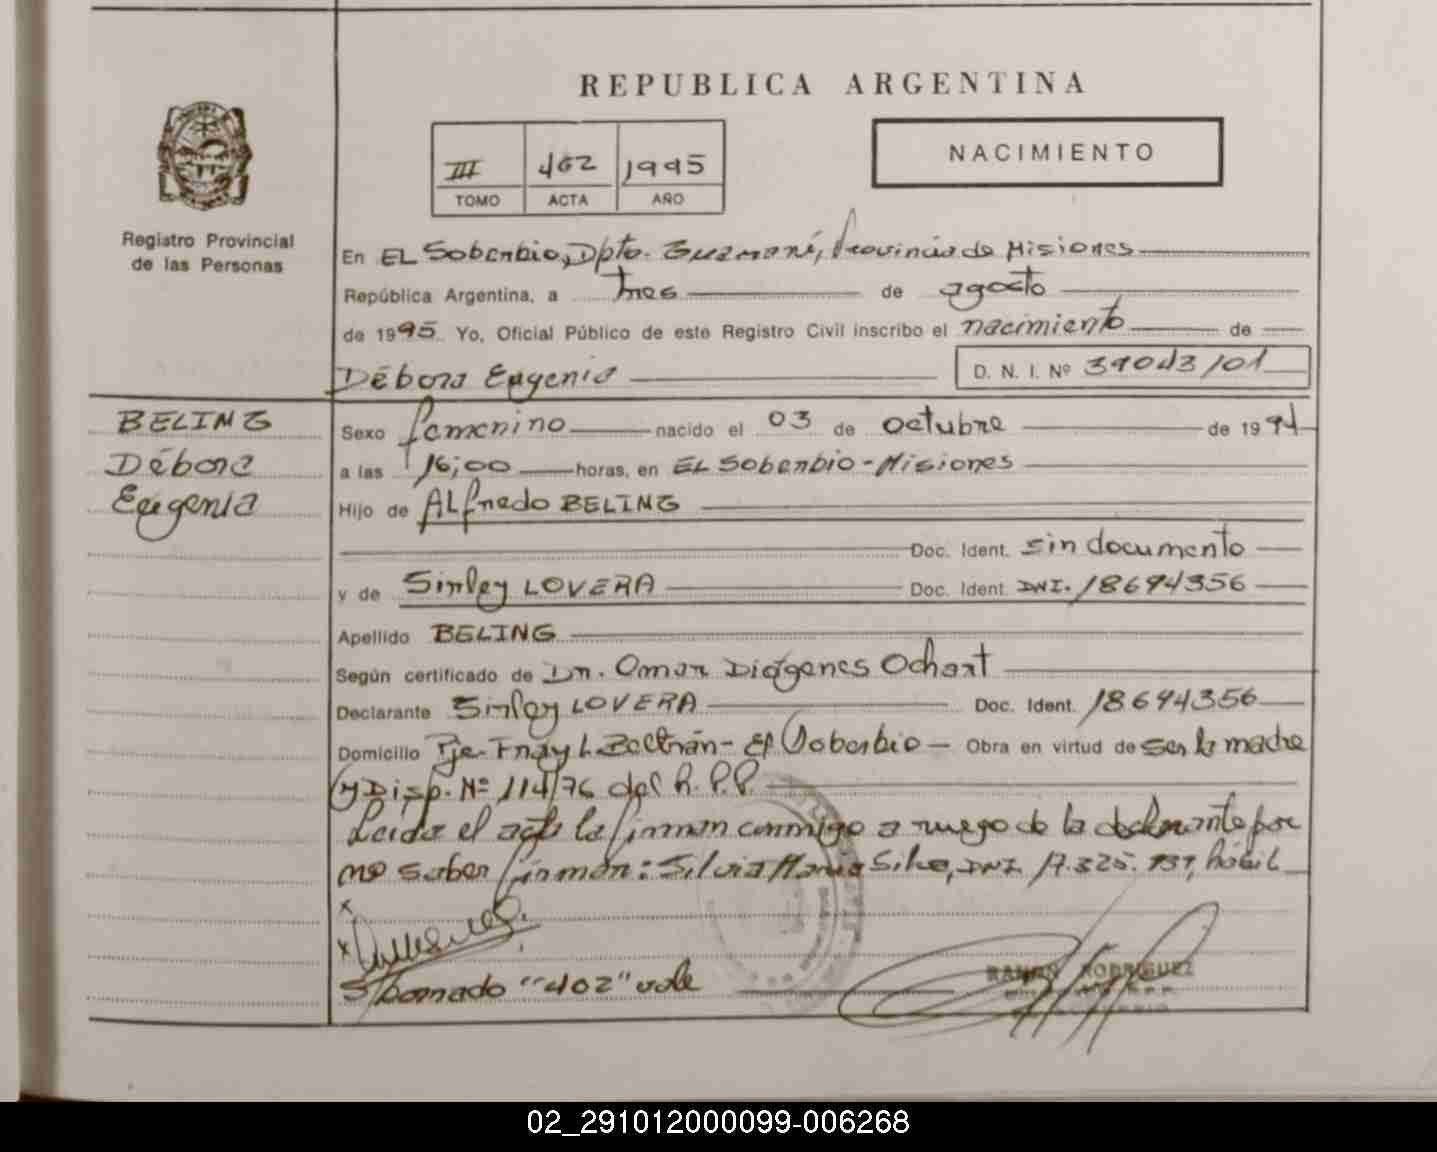 REPUBLICA ARGENTINA
III 402 1995
TOMO ACTA AÑO
NACIMIENTO
Registro Provincial
de las Personas
En EL Soberbio, Dpto. Guaraní, Provincia de Misiones
República Argentina, a tres de agosto
de 1995. Yo, Oficial Público de este Registro Civil inscribo el nacimiento de
Débora Eugenia D. N. I. Nº
BELING
Débora
Eugenia
Sexo femenino nacido el 03 de octubre de 1994
a las 16,00 horas, en EL Soberbio - Misiones
Hijo de ALfredo BELING
Doc. Ident. sin documento
y de Sirley LOVERA Doc. Ident. DNI. 18694356
Apellido BELING
Según certificado de Dr. Omar Diógenes Ochart
Declarante Sirley LOVERA Doc. Ident. 18694356
Domicilio Pje. Fray L. Beltrán - El Soberbio - Obra en virtud de ser la madre
y Disp. Nº 114/76 del R.P.P.
Leída el acta la firman conmigo a ruego de la declarante por
no saber firmar: Silvia María Silva, DNI 17.325. hábil
x
x
"402" vale
RAMON RODRIGUEZ
02_291012000099-006268